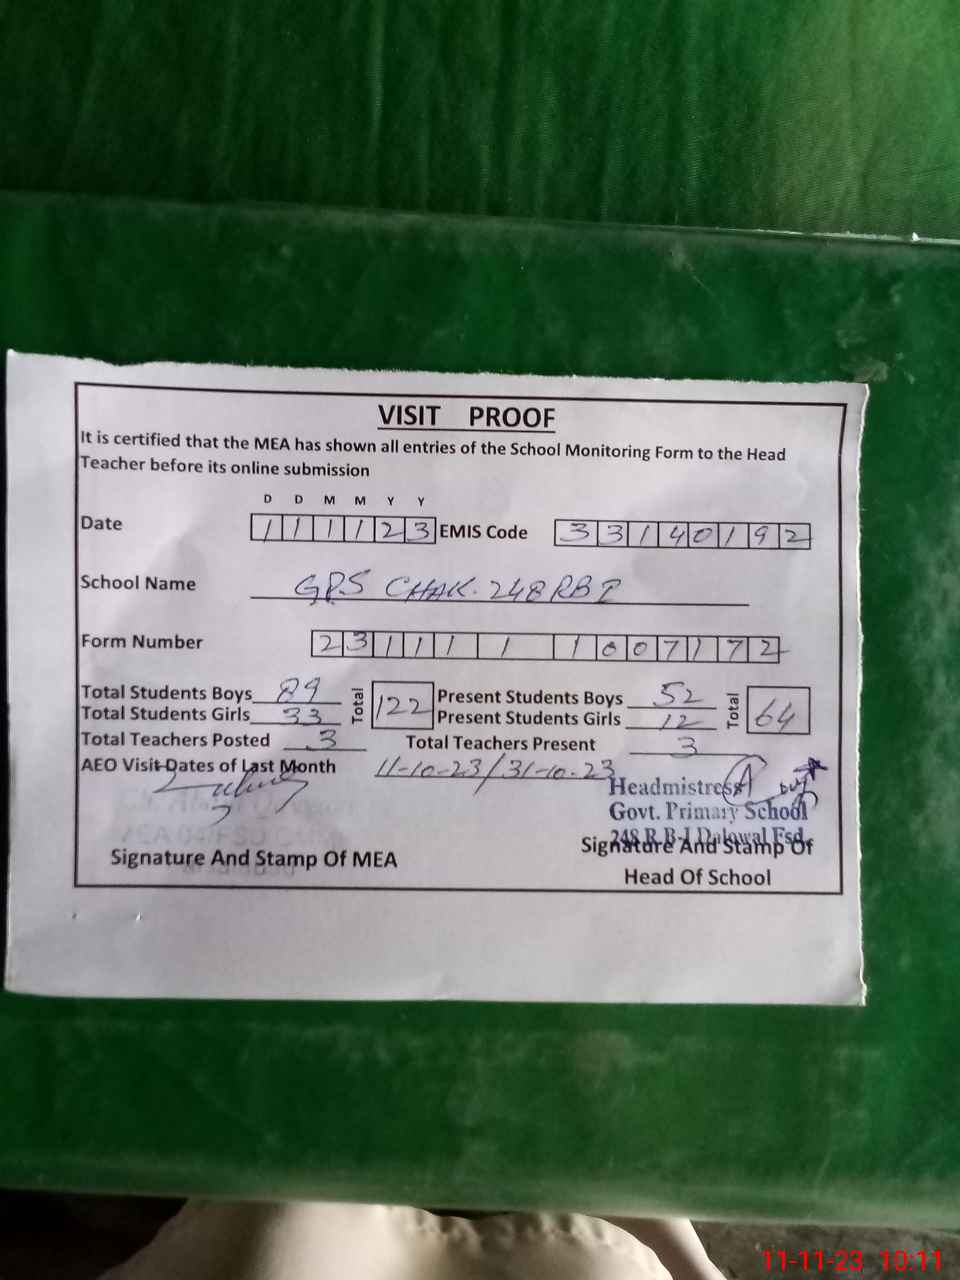 VISIT PROOF
It is certified that the MEA has shown all entries of the School Monitoring Form to the Head
Teacher before its online submission
D D M M Y Y
Date 1 1 1 1 2 3 EMIS Code 3 3 1 4 0 1 9 2
School Name GPS CHAK. 248 RB I
Form Number 2 3 1 1 1 1 1 0 0 7 1 7 2
Total Students Boys 89 Total 122 Present Students Boys 52 Total 64
Total Students Girls 33 Present Students Girls 12
Total Teachers Posted 3 Total Teachers Present 3
AEO Visit Dates of Last Month 11-10-23/31-10-23
Headmistress
Govt. Primary School
248 R.B-I Dalowal Fsd.
Signature And Stamp Of MEA
Signature And Stamp Of
Head Of School
11-11-23 10:11